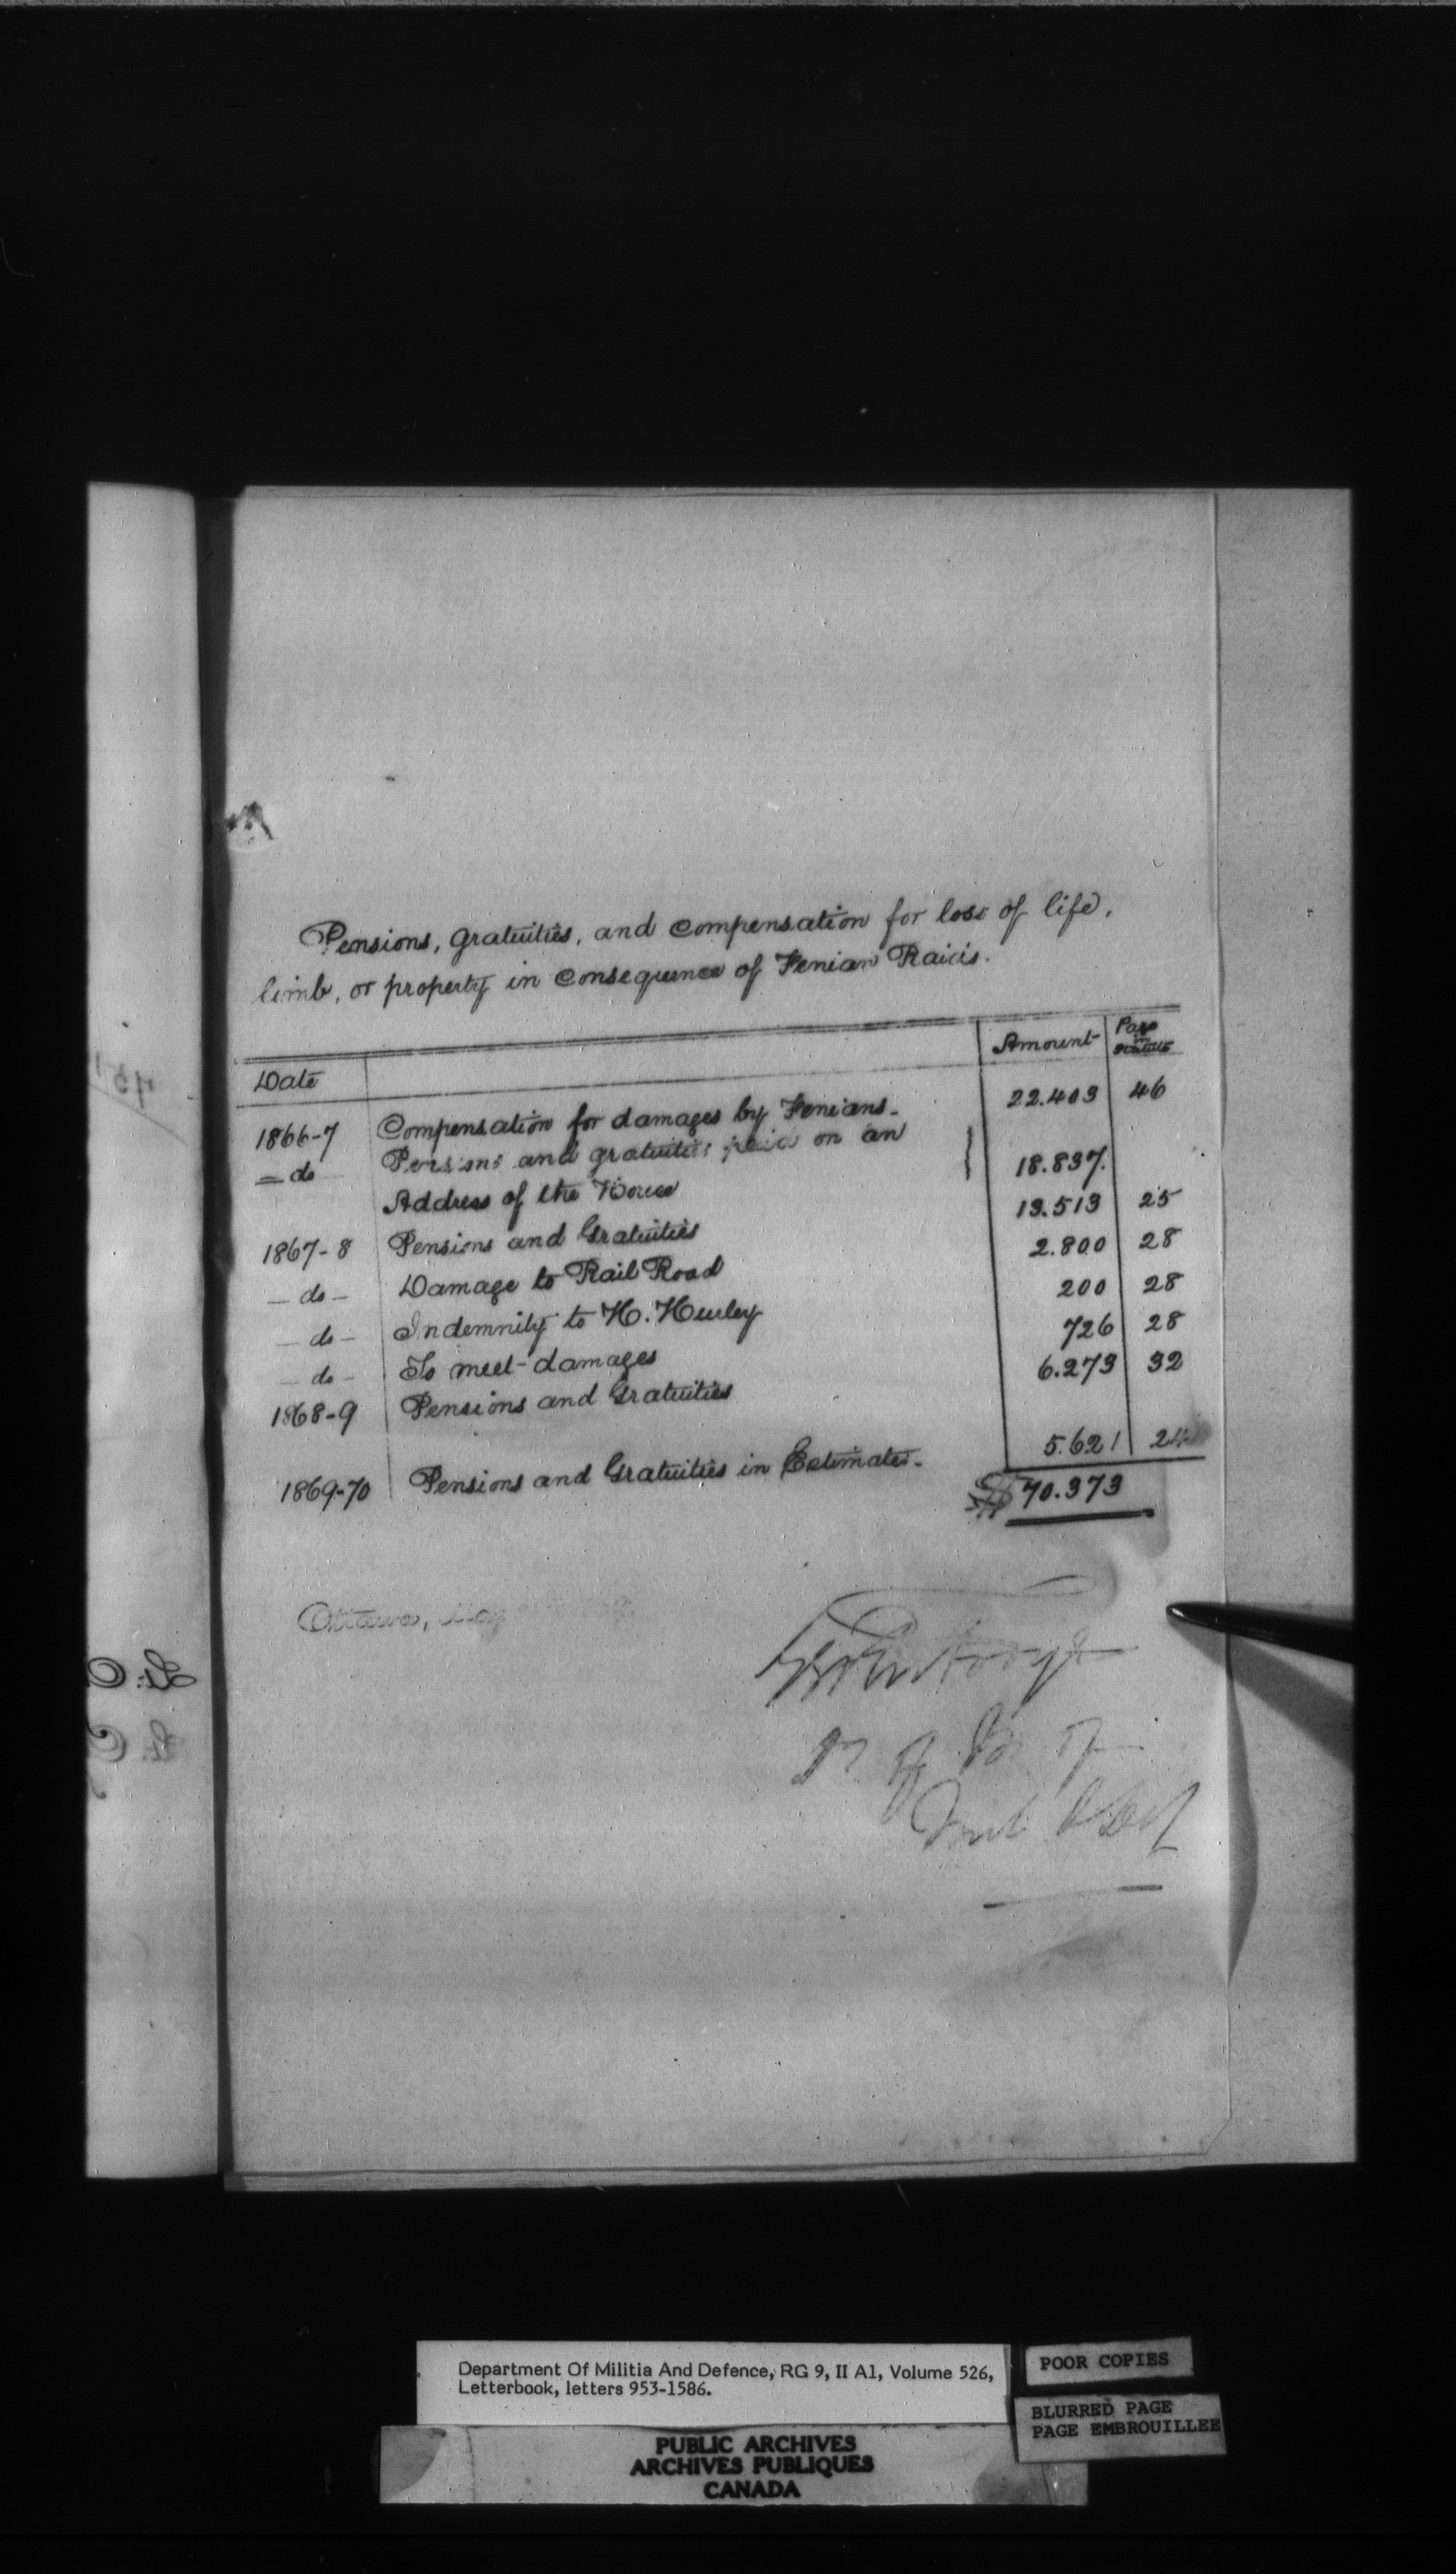 Pensions, gratuities, and compensation for loss of life,
limb, or property in consequence of Fenian Raids.
Date Amount Page in Statute
1866-7 Compensation for damages by Fenians - 22.403 46
- do Pensions and gratuities paid on an
Address of the House 18.837.
1867-8 Pensions and Gratuities 13.513 25
- do - Damage to Rail Road 2.800 28
- do - Indemnity to H. Hurley 200 28
- do - To meet damages 726 28
1868-9 Pensions and Gratuities 6.273 32
1869-70 Pensions and Gratuities in Estimates - 5.621 24
$70.373
Ottawa, May
Department Of Militia And Defence, RG 9, II A1, Volume 526,
Letterbook, letters 953-1586.
POOR COPIES
BLURRED PAGE
PAGE EMBROUILLEE
PUBLIC ARCHIVES
ARCHIVES PUBLIQUES
CANADA